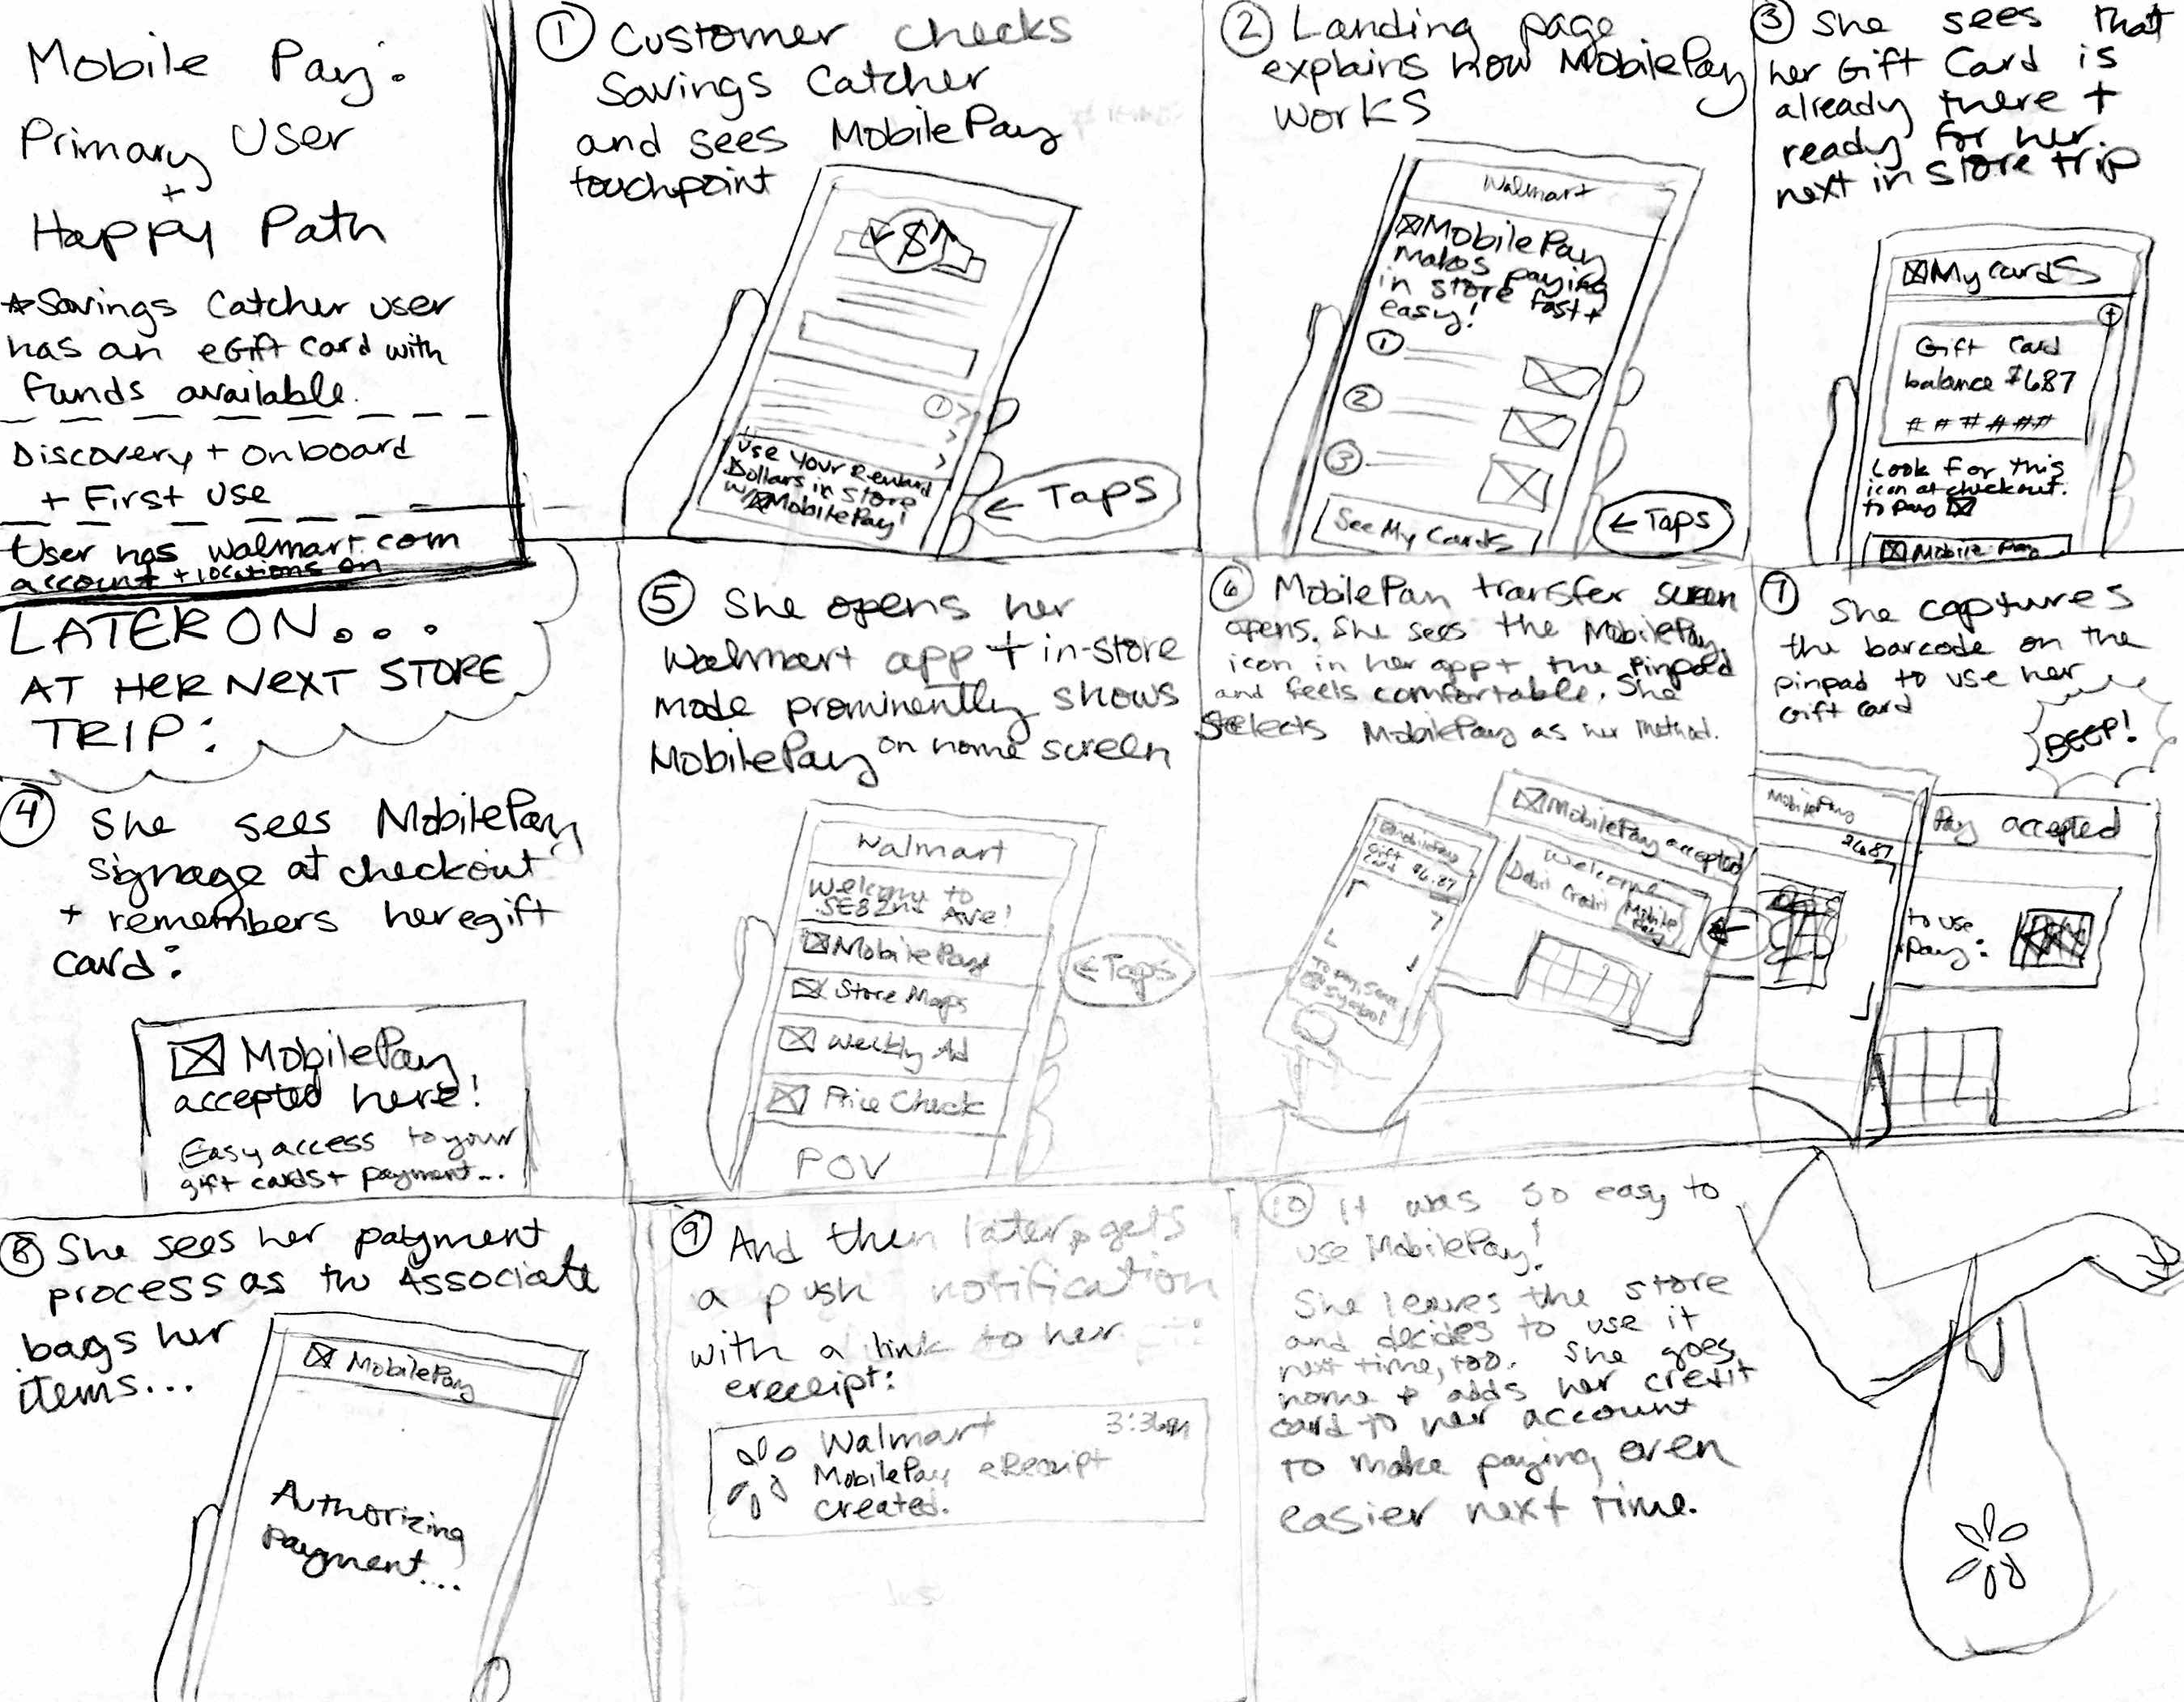 Mobile Pay:
Primary User
+
Happy Path
*Savings Catcher user
has an eGift card with
funds available.
Discovery + Onboard
+ First Use
User has Walmart.com
account + locations on
① Customer checks
Savings Catcher
and sees MobilePay
touchpoint
$
①>
>
>
Use your Reward
Dollars in store
w/ MobilePay!
← Taps
② Landing page
explains how MobilePay
works
Walmart
MobilePay
makes paying
in store fast +
easy!
①
②
③
See My Cards
← Taps
③ She sees that
her Gift Card is
already there +
ready for her
next in store trip
My cards
+
Gift Card
balance $6.87
# # # # # #
Look for this
icon at checkout
to pay
Mobile Pay
LATER ON...
AT HER NEXT STORE
TRIP:
④ She sees MobilePay
signage at checkout
+ remembers her egift
card:
MobilePay
accepted here!
Easy access to your
gift cards + payment...
⑤ She opens her
Walmart app + in-store
mode prominently shows
MobilePay on home screen
Walmart
Welcome to
SE 82nd Ave!
MobilePay
Store Maps
Weekly Ad
Price Check
POV
← Taps
⑥ MobilePay transfer screen
opens. She sees the MobilePay
icon in her app + the Pinpad
and feels comfortable. She
Selects MobilePay as her method.
MobilePay
Gift
Card $6.87
To pay, scan
symbol
MobilePay accepted
Welcome
Debit Credit Mobile
Pay
←
⑦ She captures
the barcode on the
pinpad to use her
Gift card
BEEP!
MobilePay
$6.87
Pay accepted
to use
Pay:
⑧ She sees her payment
process as the Associate
bags her
items...
MobilePay
Authorizing
payment....
⑨ And then later gets
a push notification
with a link to her
ereceipt:
Walmart 3:36pm
MobilePay eReceipt
created.
⑩ It was so easy to
use MobilePay!
She leaves the store
and decides to use it
next time, too. She goes
home + adds her credit
card to her account
to make paying even
easier next time.